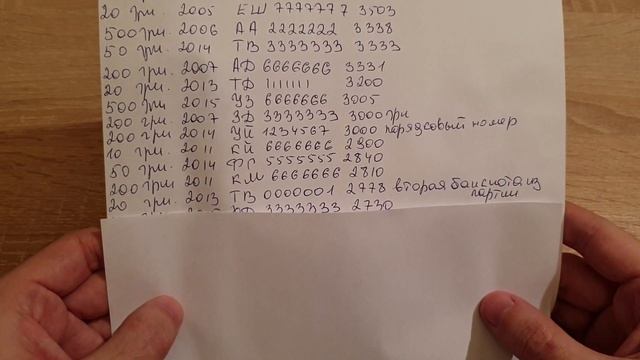 20 грн. 2005 ЕШ 7777777 3503
500 грн. 2006 АА 2222222 3338
50 грн. 2014 ТВ 3333333 3333
200 грн. 2007 АД 6666666 3331
20 грн. 2013 ТФ 1111111 3200
500 грн 2015 УЗ 6666666 3005
200 грн. 2007 ЗД 3333333 3000 грн
200 грн. 2014 УЙ 1234567 3000 порядковый номер
10 грн. 2011 КЙ 6666666 2900
50 грн. 2014 ФС 5555555 2840
200 грн 2011 КМ 6666666 2810
20 грн. 2013 ТВ 0000001 2778 вторая банкнота из партии
3333333 2730